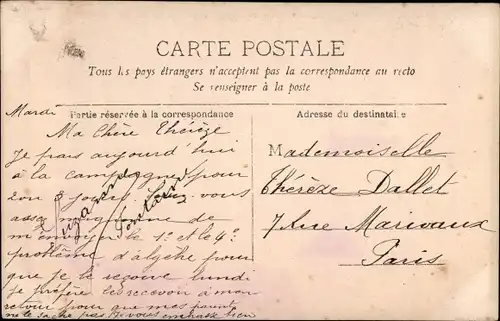 CARTE POSTALE
Tous les pays étrangers n'acceptent pas la correspondance au recto
Se renseigner à la poste
Partie réservée à la correspondance
Mardi
Ma Chère Thérèze
Je pars aujourd'hui
à la campagne pour
8 jours. vous
assez mignonne de
m'envoyer le 1e et le 4e
problème d'algèbre pour
que je le reçoive lundi
Je préfère les recevoir à mon
retour pour que mes parents
ne le sache pas Je vous embrasse bien
Suzanne
Adresse du destinataire
Mademoiselle
Thérèze Dallet
7 Rue Marivaux
Paris